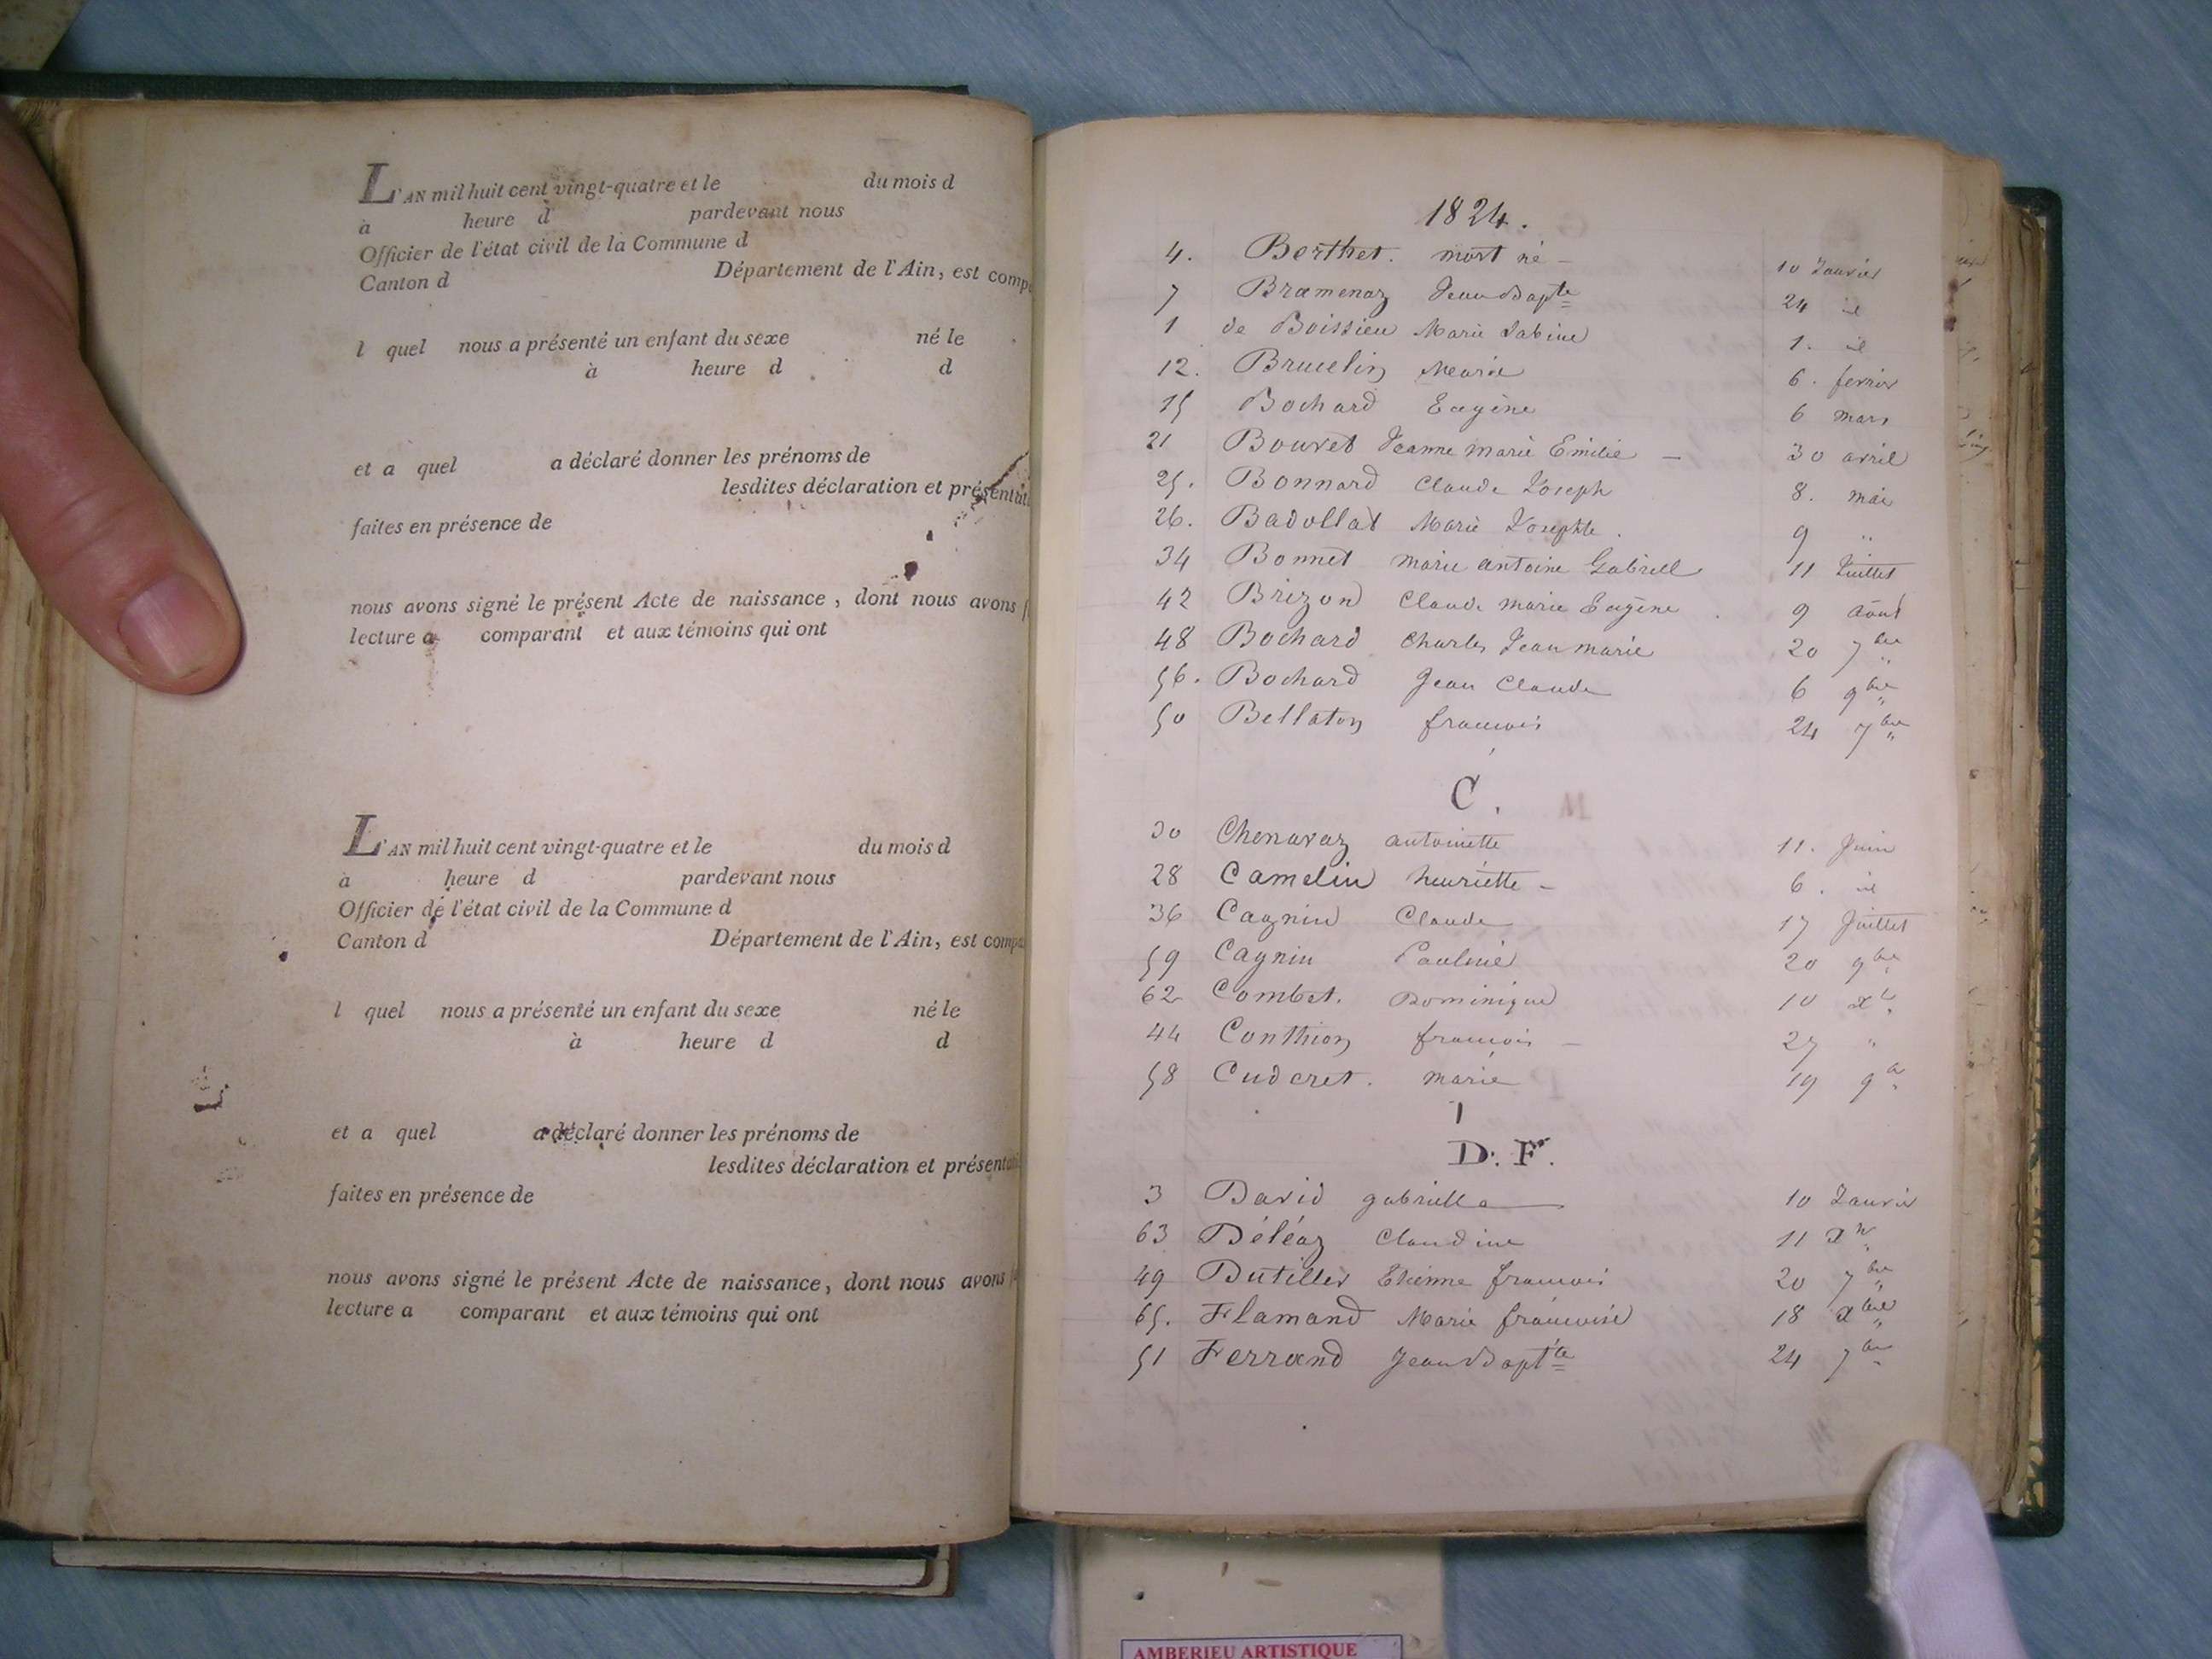 L'AN mil huit cent vingt-quatre et le du mois d
à heure d pardevant nous
Officier de l'état civil de la Commune d
Canton d Département de l'Ain, est comp
l quel nous a présenté un enfant du sexe né le
à heure d d
et a quel a déclaré donner les prénoms de
lesdites déclaration et présentat
faites en présence de
nous avons signé le présent Acte de naissance, dont nous avons f
lecture a comparant et aux témoins qui ont
L'AN mil huit cent vingt-quatre et le du mois d
à heure d pardevant nous
Officier de l'état civil de la Commune d
Canton d Département de l'Ain, est compa
l quel nous a présenté un enfant du sexe né le
à heure d d
et a quel a déclaré donner les prénoms de
lesdites déclaration et présentati
faites en présence de
nous avons signé le présent Acte de naissance, dont nous avons f
lecture a comparant et aux témoins qui ont
1824.
4. Berthet. mort né - 10 Janvier
7 Bramenaz Jean Bapte 24 id
1 de Boissieu Marie Sabine 1. id
12. Brucelin Marie 6. fevrier
15 Bochard Eugène 6 mars
21 Bouvet Jeanne marie Emilie - 30 avril
25. Bonnard Claude Joseph 8. mai
26. Badollat Marie Josephte. 9 "
34 Bonnet marie antoine Gabriell 11 Juillet
42 Brizon Claude marie Eugène 9 août
48 Bochard Charles Jean marie 20 7bre
56. Bochard Jean Claude 6 9bre
50 Bellaton francois 24 7bre
C.
30 Chenavaz antoinette 11. Juin
28 Camelin henriette - 6. id
36 Cagnin Claude 17 Juillet
59 Cagnin Pauline 20 9bre
62 Combet. Dominique 10 xb
44 Conthion francois - 27 "
58 Cuderet. marie 19 9b
D. F.
3 David gabrielle 10 Janvier
63 Déléaz Claudine 11 xbr
49 Dutillier Etienne francois 20 7bre
65. Flamand Marie francoise 18 xbre
51 Ferrand Jean Bapte 24 7bre
AMBERIEU ARTISTIQUE